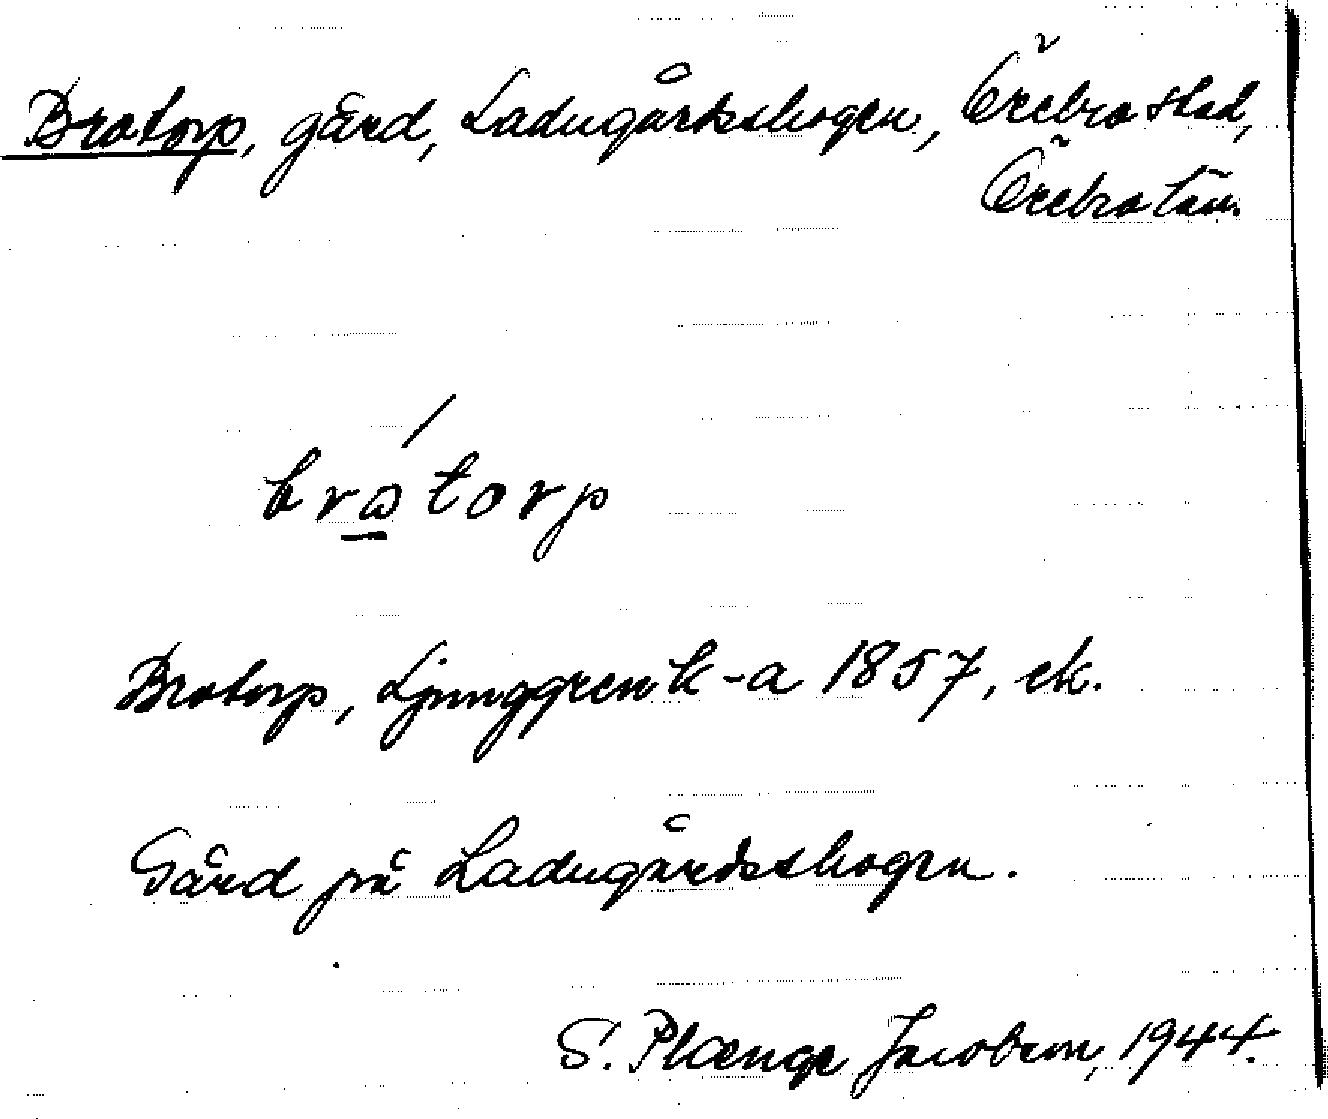 Brotorp, gård, Ladugårdsskogen, Örebro stad,
Örebro län.
brωtorp
Brotorp, Ljunggren k-a 1857, ek.
Gård på Ladugårdsskogen.
S. Plænge Jacobson, 1944.